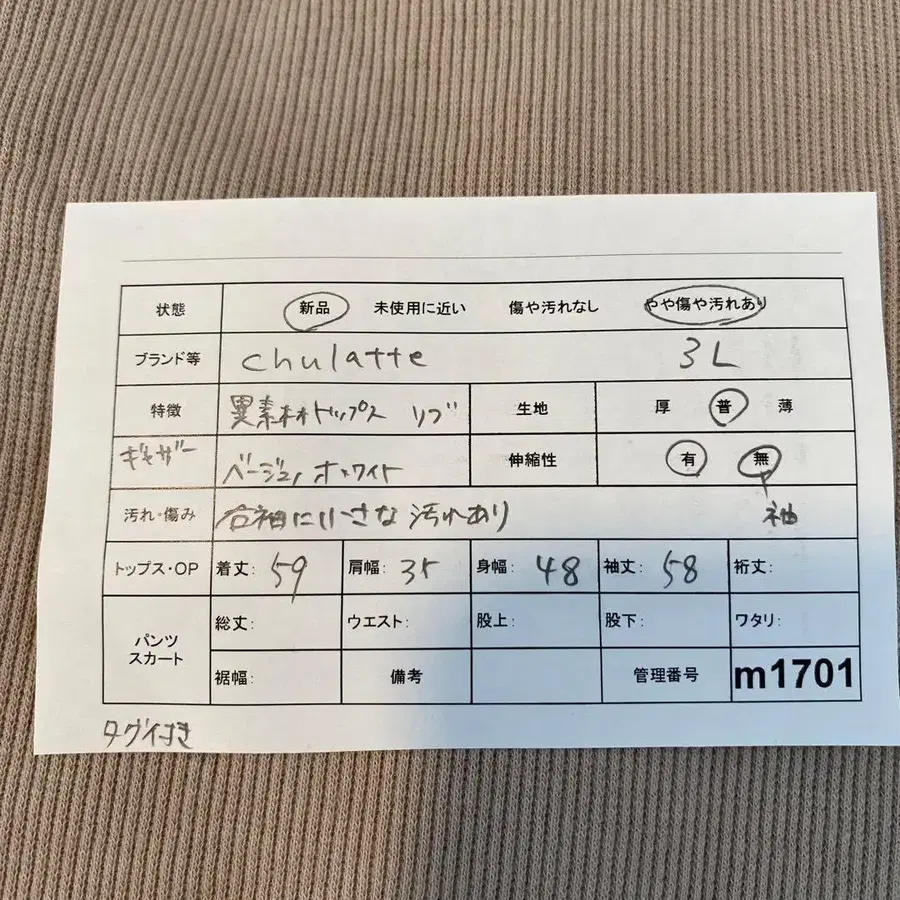 状態 新品 未使用に近い 傷や汚れなし やや傷や汚れあり
ブランド等 chulatte 3L
特徴 異素材トップス リブ 生地 厚 普 薄
ギャザー ベージュ, オフホワイト 伸縮性 有 無
汚れ・傷み 右袖に小さな汚れあり 袖
トップス・OP 着丈: 59 肩幅: 35 身幅: 48 袖丈: 58 裄丈:
パンツ スカート 総丈: ウエスト: 股上: 股下: ワタリ:
裾幅: 備考 管理番号 m1701
タグ付き